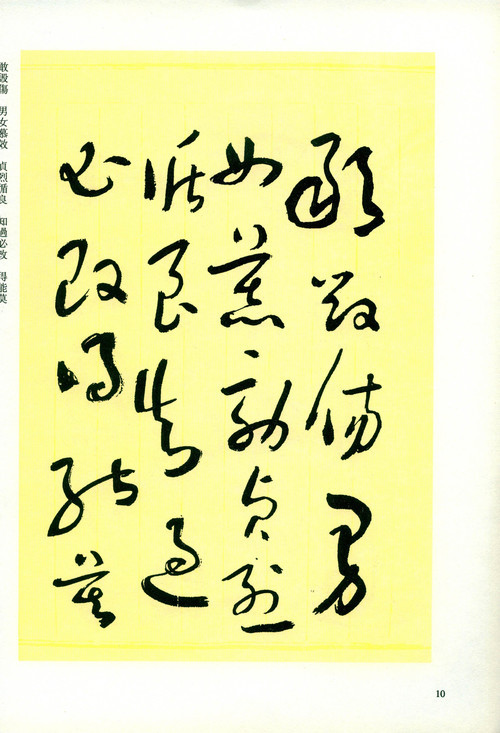 敢毀傷男
女慕効貞烈
循良知過
必改得能莫
敢毀傷 男女慕效 貞烈循良 知過必改 得能莫
10